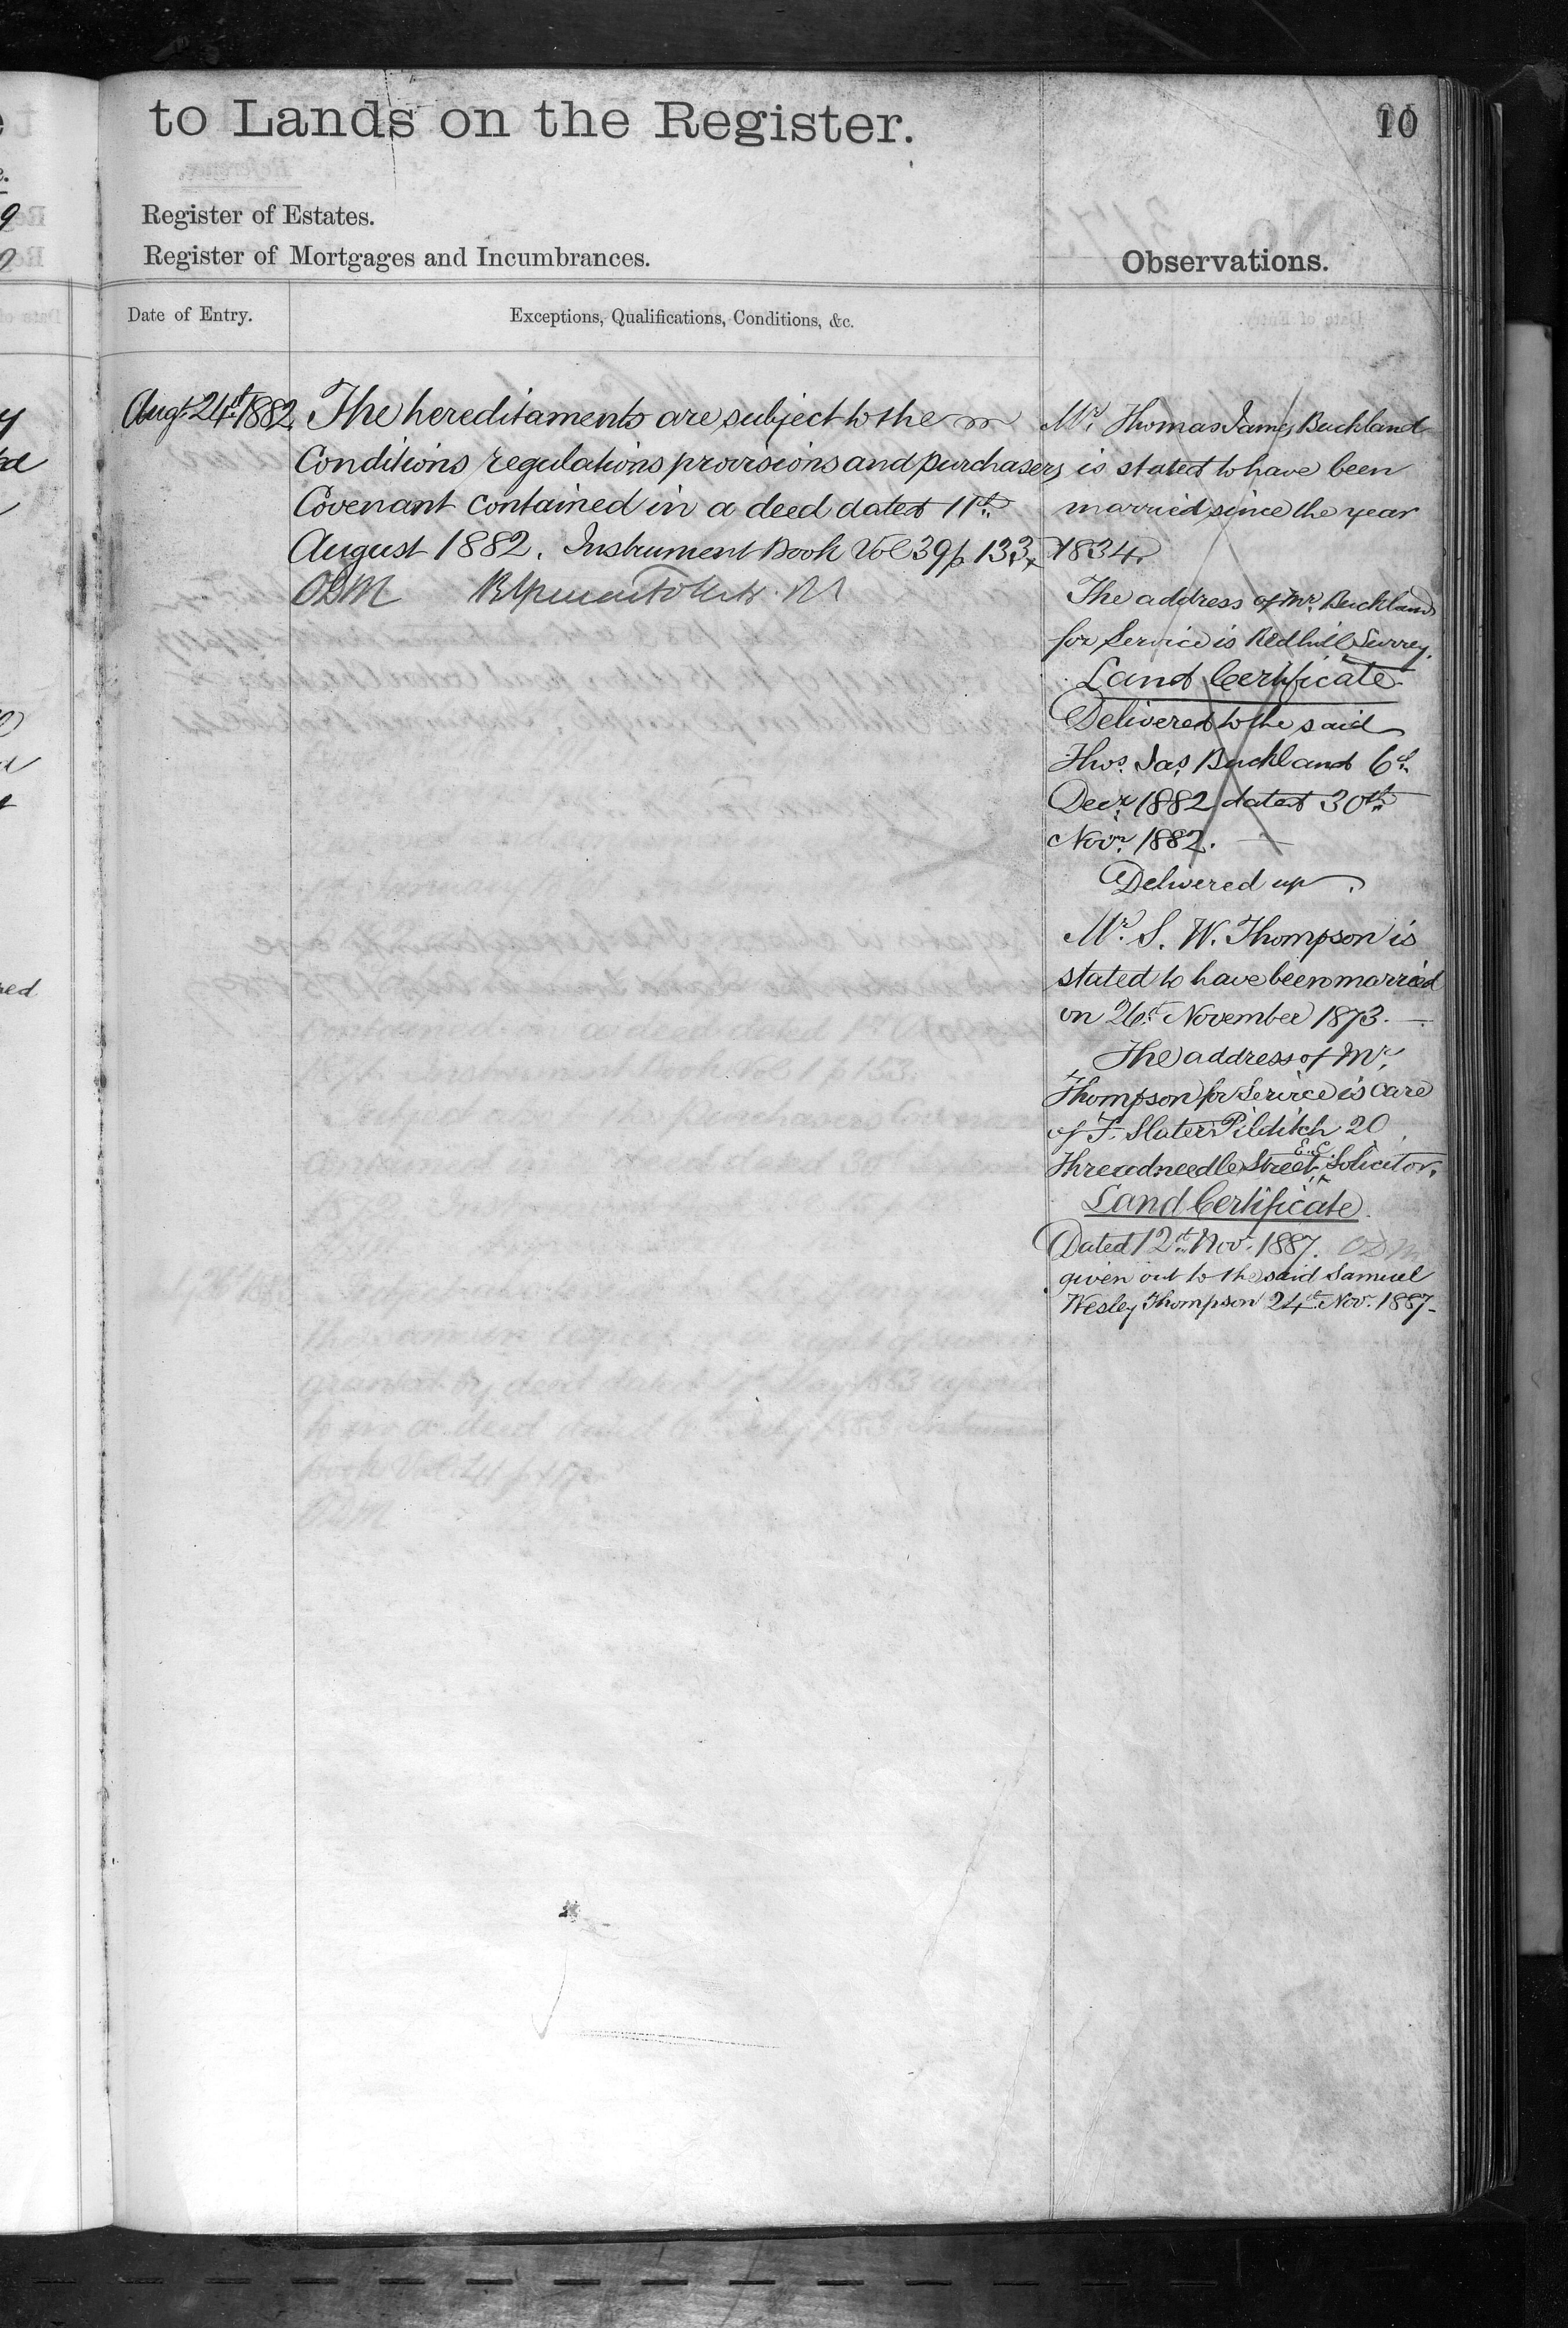 to Lands on the Register.
10
Register of Estates.
Register of Mortgages and Incumbrances.
Observations.
Date of Entry.
Exceptions, Qualifications, Conditions, &c.
Augt. 24th 1882.
The hereditaments are subject to the
Conditions regulations provisions and purchasers
Covenant contained in a deed dated 11th
August 1882. Instrument Book Vol 39 p 133.
ODM
Mr. Thomas James Buckland
is stated to have been
married since the year
1834.
The address of Mr. Buckland
for Service is Redhill Surrey.
Land Certificate
Delivered to the said
Thos. Jas. Buckland 6th
Decr. 1882 dated 30th
Novr. 1882.
Delivered up.
Mr. S. W. Thompson is
stated to have been married
on 26th November 1873.
The address of Mr.
Thompson for Service is care
of F. Slater Pilditch 20
Threadneedle Street, E.C. Solicitor.
Land Certificate.
Dated 12th Nov. 1887. ODM
given out to the said Samuel
Wesley Thompson 24th Nov. 1887-